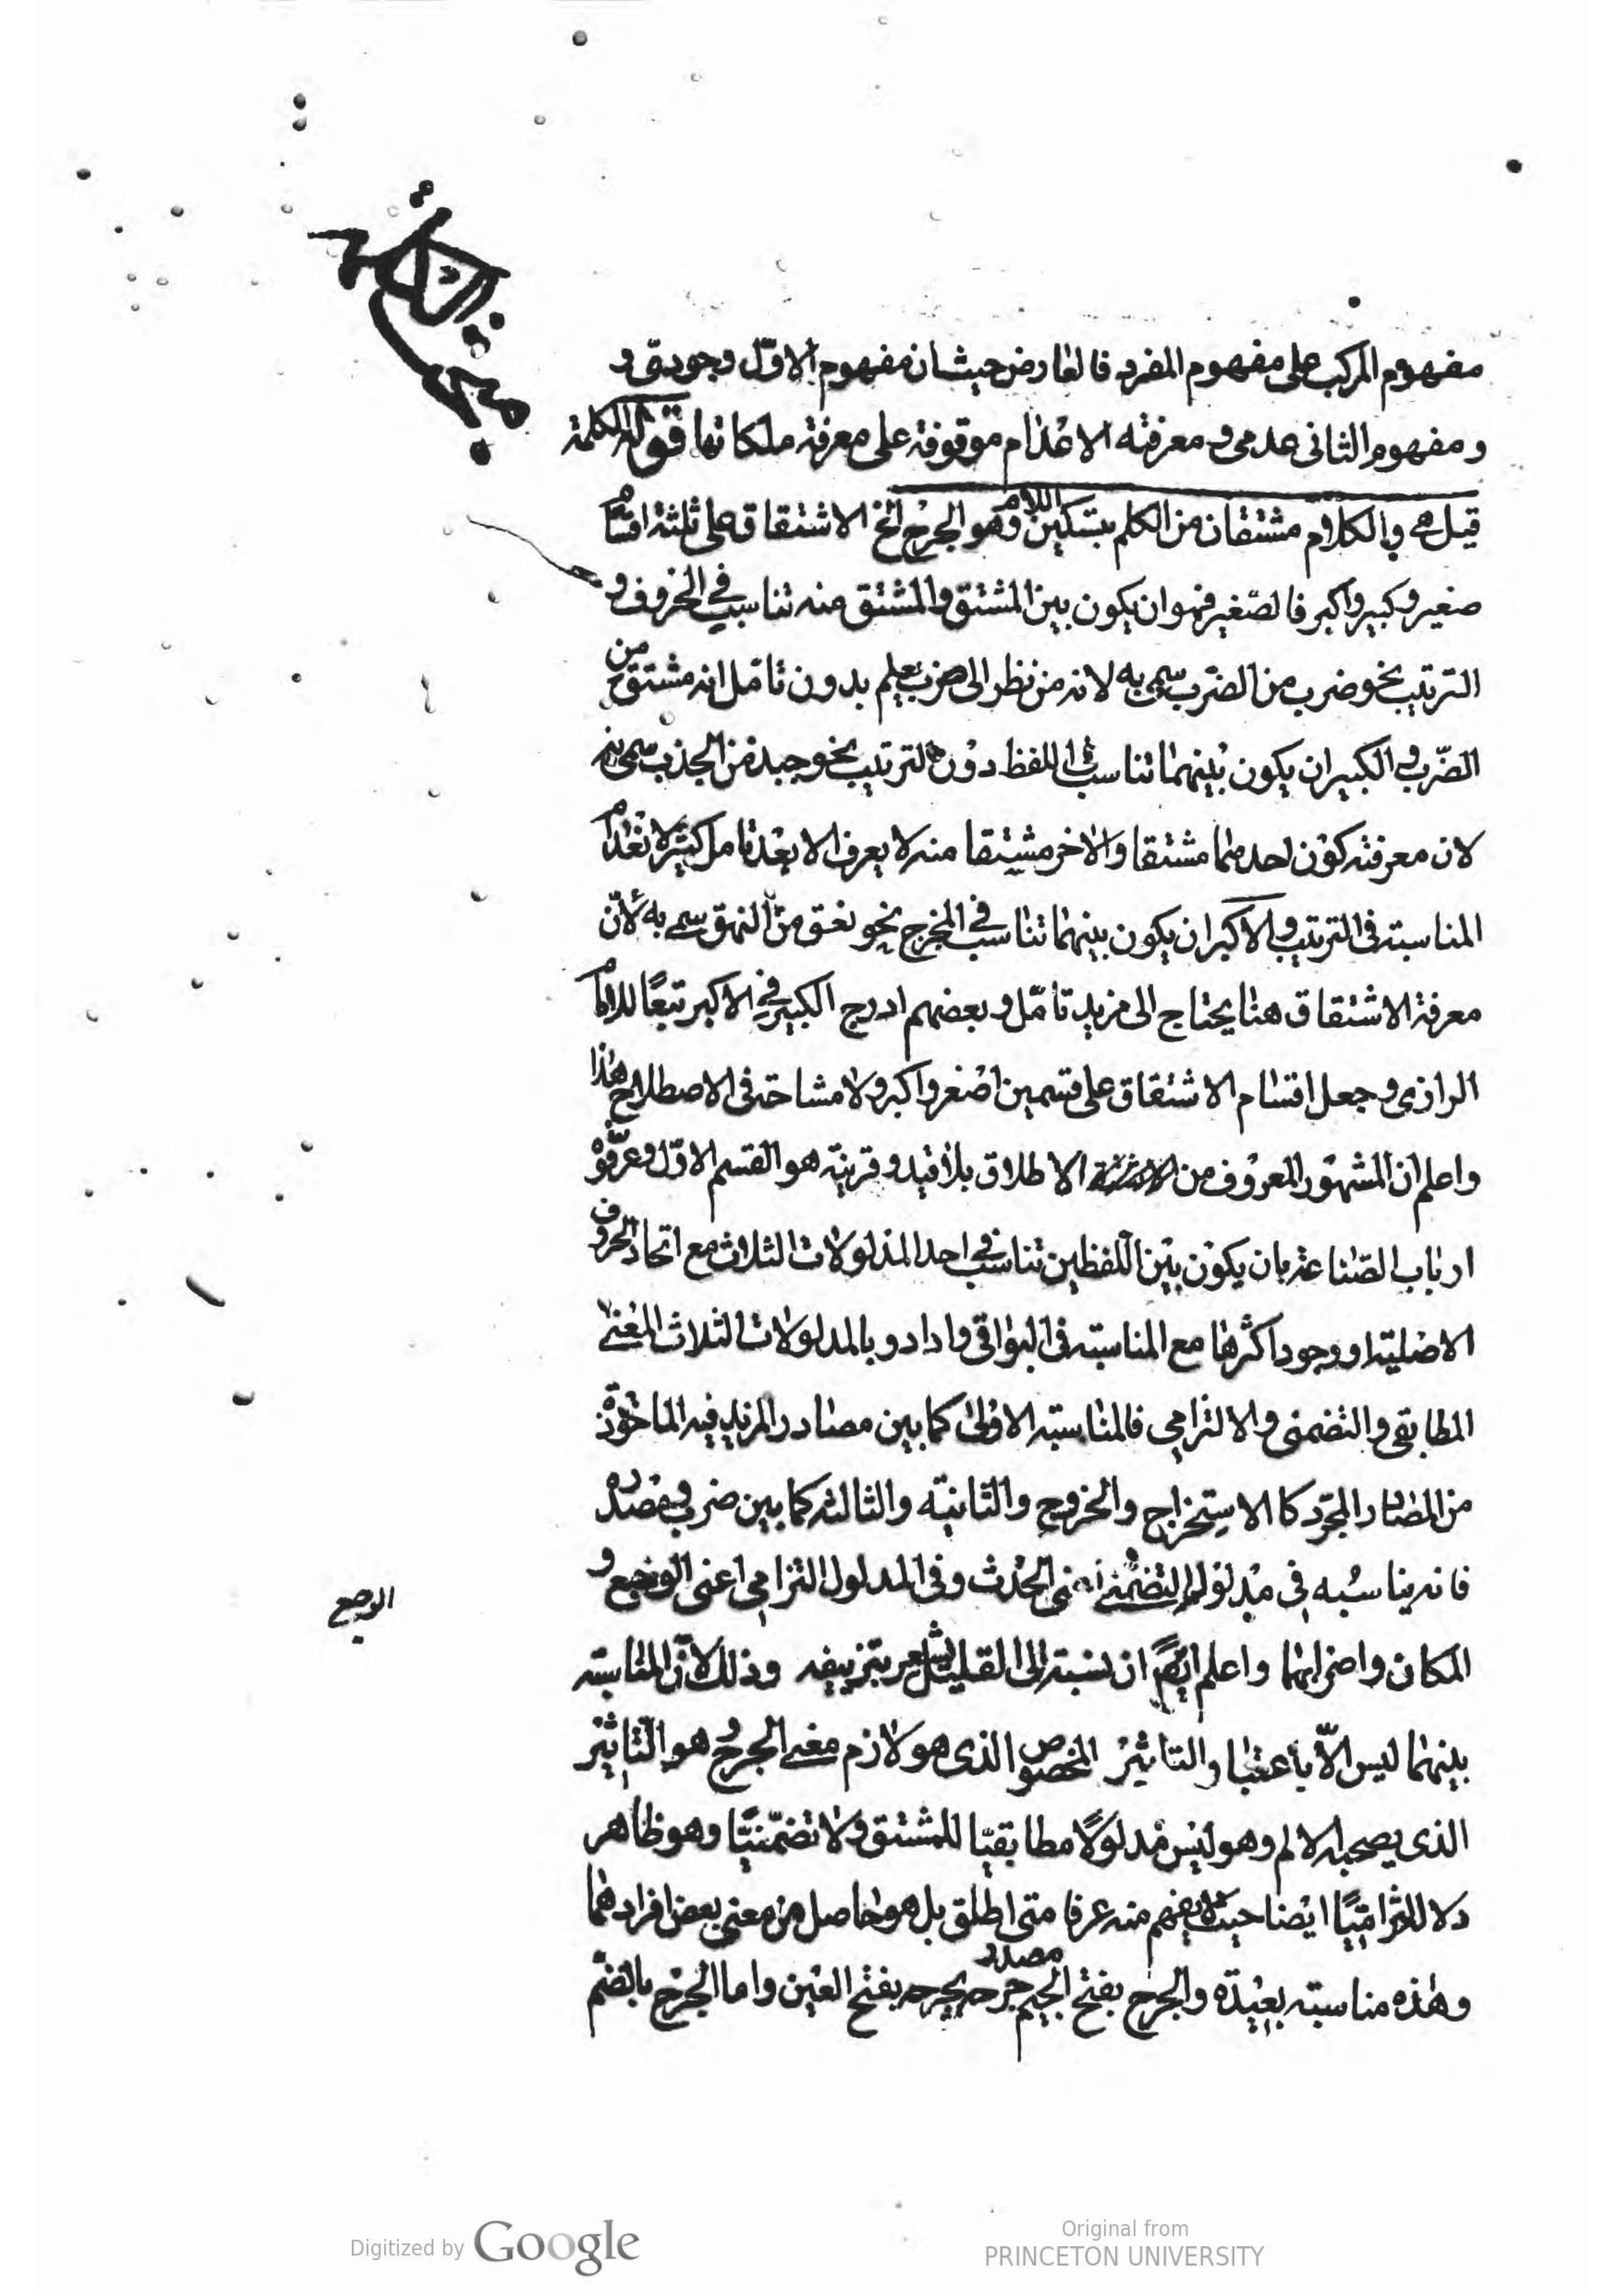 مفهوم المركب على مفهوم المفرد فالعارض حيث ان مفهوم الاوّل وجودىّ و
ومفهوم الثانى عدمى ومعرفته الاعدام موقوفة على معرفة ملكاتها قوله الكلمة
قيل هى والكلام مشتقان من الكلم بتسكين اللام وهو الجرح الخ الاشتقاق على ثلثة اقسام
صغير وكبير واكبر فالصّغير فهو ان يكون بين المشتق والمشتق منه تناسب فى الحروف و
الترتيب نحو ضرب من الضّرب سمى به لانه من نظر الى ضرب يعلم بدون تامّل انه مشتق من
الضّرب والكبير ان يكون بينهما تناسب فى اللفظ دون الترتيب نحو جبذ من الجذب سمى به
لان معرفته كون احدهما مشتقا والاخر مشتقا منه لا يعرف الا بعد تامل كثير لانعدام
المناسبة فى الترتيب والاكبر ان يكون بينهما تناسب فى المخرج نحو نعق من النهق سمى به لانّ
معرفة الاشتقاق هنا يحتاج الى مزيد تامّل وبعضهم ادرج الكبير فى الاكبر تبعًا للامام
الرازى وجعل اقسام الاشتقاق على قسمين اصغر واكبر ولا مشاحة فى الاصطلاح هذا
واعلم ان المشهور المعروف من الاطلاق بلا قيد وقرينة هو القسم الاوّل وعرّفوه
ارباب الصّناعة بان يكون بين اللفظين تناسب فى احد المدلولات الثلاث مع اتحاد الحروف
الاصلية او وجود اكثرها مع المناسبة فى البواقى وارادوا بالمدلولات الثلاث المعنى
المطابقى والتضمنى والالتزامى فالمناسبة الاولى كما بين مصادر المزيد فيه الماخوذة
من المصادر المجرّد كالاستخراج والخروج والثانية والثالثة كما بين ضرب ومصدره
فانه يناسبه فى مدلوله التضمنى اعنى الحدث وفى المدلول التزامى اعنى الوضع و
الوضع
المكان واضرابهما واعلم ايضًا ان نسبته الى القيل يشعر بتزييفه وذلك لانّ المناسبة
بينهما ليس الاّ باعتبار التاثير المخصوص الذى هو لازم معنى الجرح وهو التّاثير
الذى يصحبه الالم وهو ليس مدلولًا مطابقيّا للمشتق ولا تضمّنيّا وهو ظاهر
ولا التزاميّا ايضا حيث لا يفهم منه عرفا متى اطلق بل هو حاصل من معنى بعض افرادهما
وهذه مناسبة بعيدة والجرح بفتح الجيم مصدر جرحه يجرحه بفتح العين واما الجرح بالضم
Digitized by Google
Original from
PRINCETON UNIVERSITY